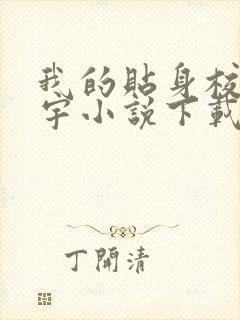 我的貼身校
宇小説下載
丁開清